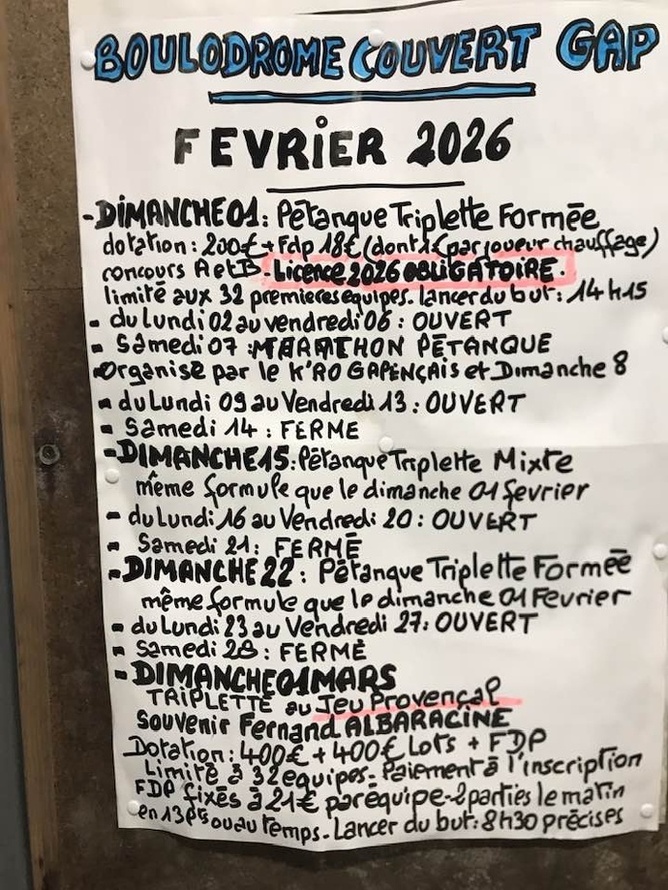 BOULODROME COUVERT GAP
FEVRIER 2026
- DIMANCHE 01: Pétanque Triplette Formée
dotation: 200€ + Fdp 18€ (dont 1€ par joueur chauffage)
concours A et B - Licence 2026 OBLIGATOIRE.
limité aux 32 premieres equipes. lancer du but: 14h15
- du Lundi 02 au vendredi 06: OUVERT
- Samedi 07: MARATHON PÉTANQUE
Organisé par le K'RO GAPENÇAIS et Dimanche 8
- du Lundi 09 au Vendredi 13: OUVERT
- Samedi 14: FERME
- DIMANCHE 15: Pétanque Triplette Mixte
même formule que le dimanche 01 fevrier
- du Lundi 16 au Vendredi 20: OUVERT
- Samedi 21: FERMÉ
- DIMANCHE 22: Pétanque Triplette Formée
même formule que le dimanche 01 Fevrier
- du Lundi 23 au Vendredi 27: OUVERT
- Samedi 28: FERMÉ
- DIMANCHE 01 MARS
TRIPLETTE au Jeu Provençal
Souvenir Fernand ALBARACINE
Dotation: 400€ + 400€ Lots + FDP
Limité à 32 equipes - Paiement à l'inscription
FDP fixés à 21€ par équipe - 2 parties le matin
en 13 pts ou au temps - Lancer du but: 8h30 précises